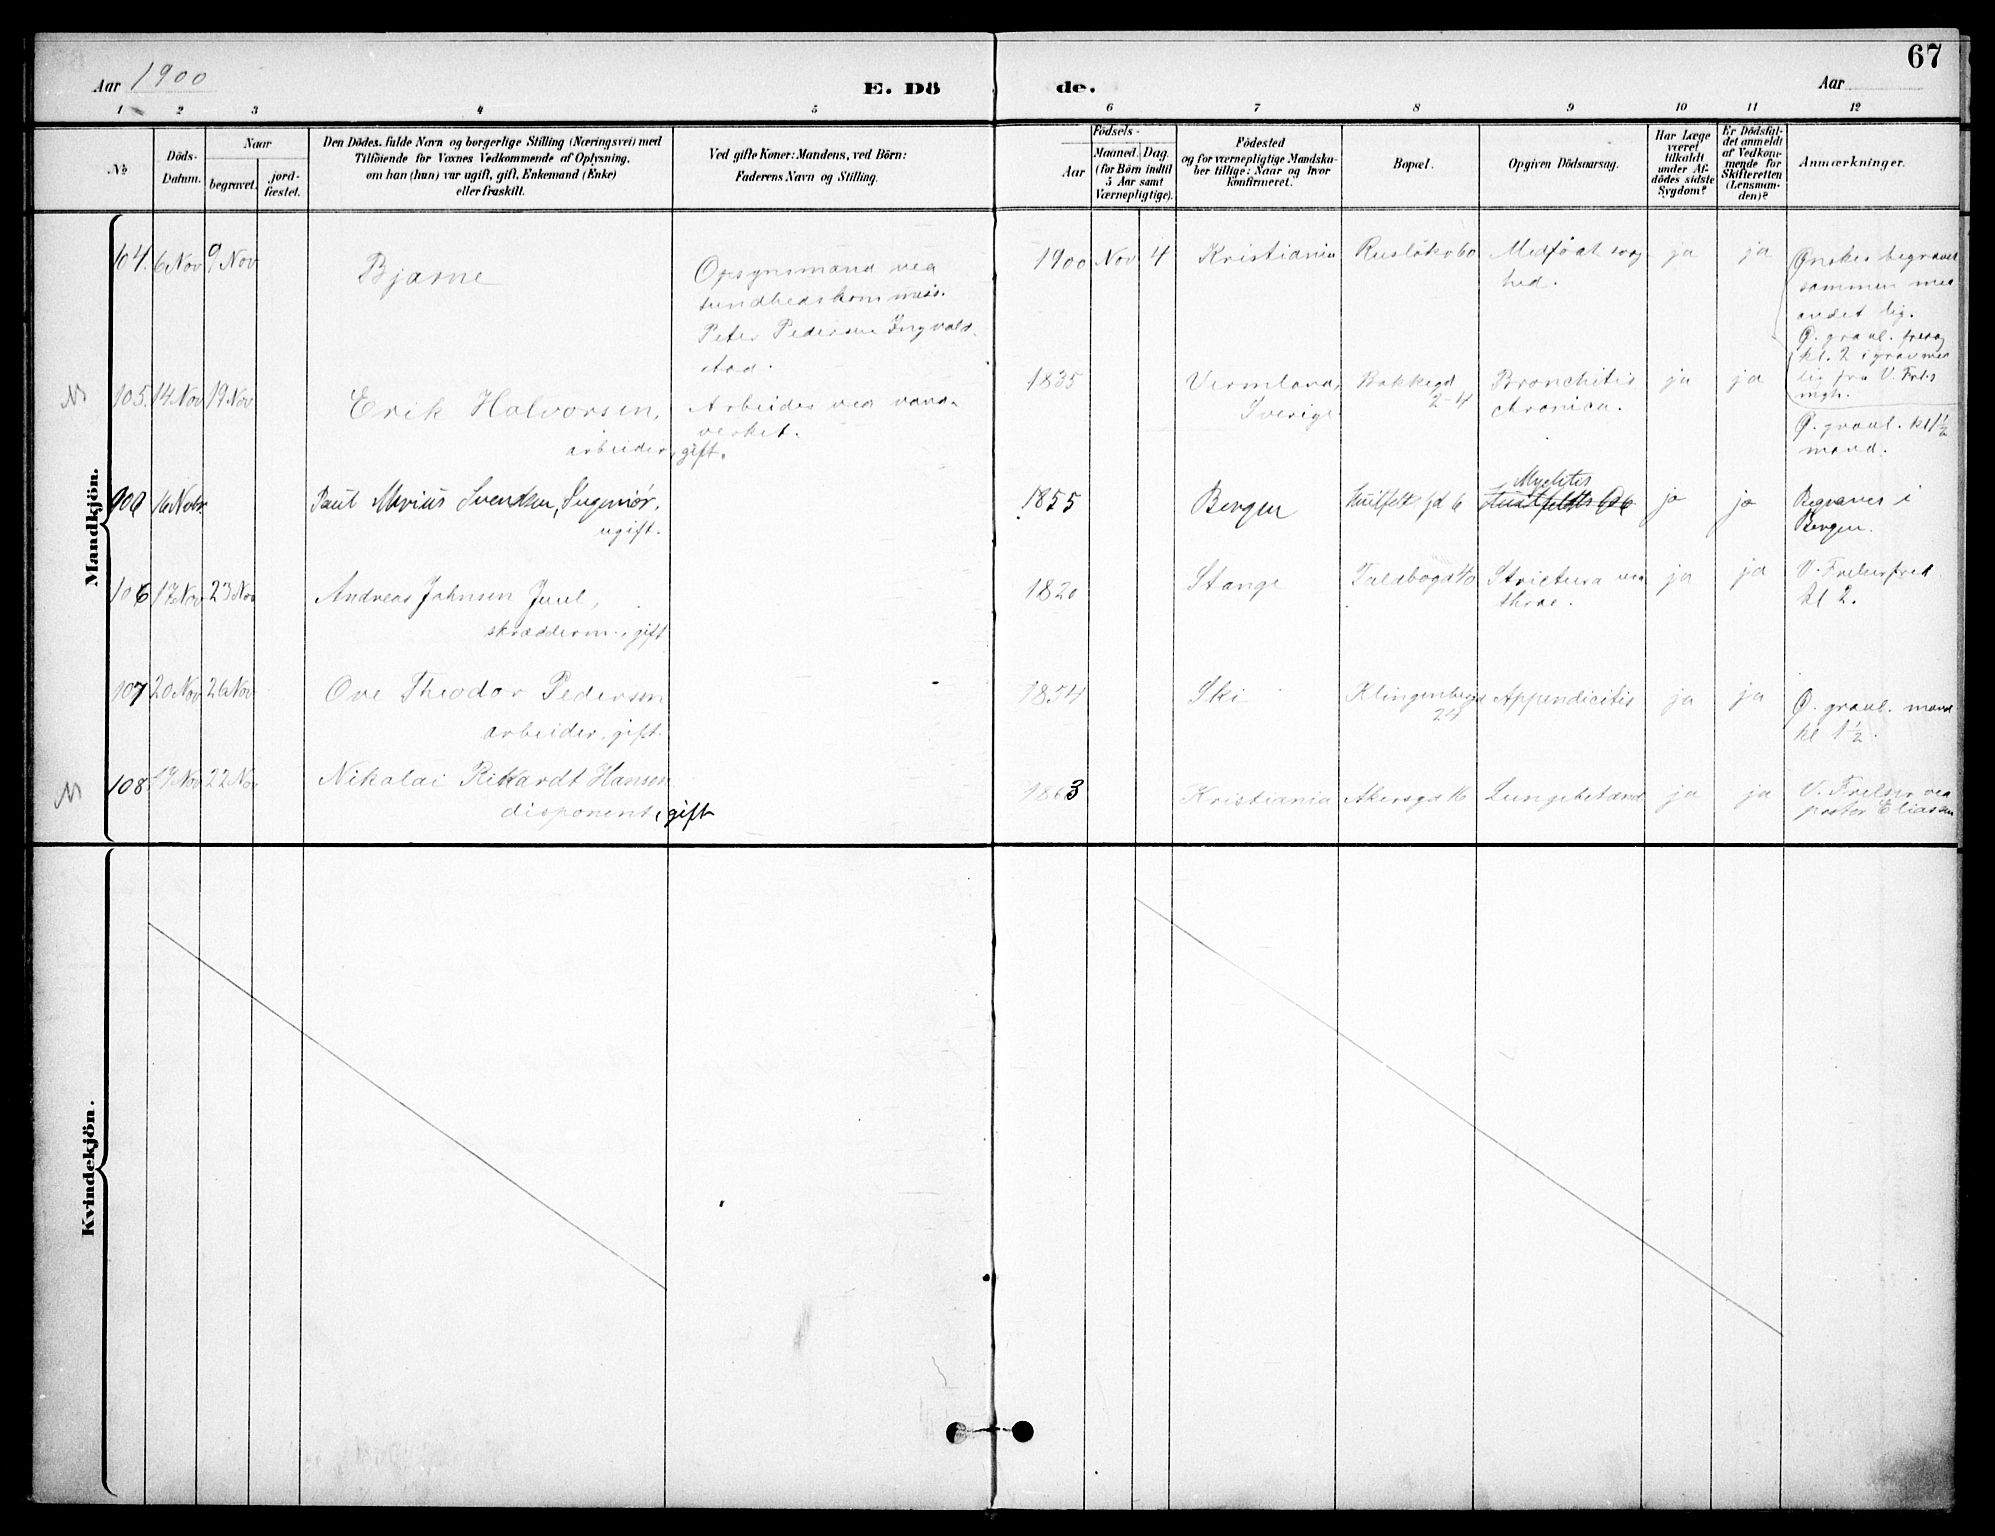 67
Aar 1900
E. Dö
de.
Aar
1 2 3 4 5 6 7 8 9 10 11 12
No
Döds-
Datum.
Naar
begravet.
jord-
fæstet.
Den Dödes fulde Navn og borgerlige Stilling (Næringsvei) med
Tilföiende for Voxnes Vedkommende af Oplysning,
om han (hun) var ugift, gift, Enkemand (Enke)
eller fraskilt.
Ved gifte Koner: Mandens, ved Börn:
Faderens Navn og Stilling.
Födsels-
Aar
Maaned. Dag.
(for Börn indtil
5 Aar samt
Værnepligtige).
Födested
og for værnepligtige Mandska-
ber tillige: Naar og hvor
konfirmeret.
Bopæl.
Opgiven Dödsaarsag.
Har Læge
været
tilkaldt
under Af-
dödes sidste
Sygdom?
Er Dödsfal-
det anmeldt
af Vedkom-
mende for
Skifteretten
(Lensman-
den)?
Anmærkninger.
Mandkjön.
104. 6 Nov 9 Nov
Bjarne
Opsynsmand ved
sundhedskommis.
Peter Pedersen Ingvald-
stad.
1900 Nov 4
Kristiania
Rusløkv 60
Medfødt svag
hed.
ja
ja
Ønskes begravet
sammen med
andet lig.
Ø. gravl. fredag
kl. 2 i grav med
lig fra V. Frls
mgh.
N 105. 14 Nov 19 Nov
Erik Halvorsen,
arbeider, gift.
Arbeider ved vand-
verket.
1835
Vermland,
Sverige
Bakkegd
2-4
Bronchitis
chronica.
ja
ja
Ø. gravl. kl 1 1/2
mand.
906 16 Nvbr.
Paul Marius Svendsen, Ingeniør,
ugift.
1855
Bergen
Huitfelt gd 6
Myelitis
Huitfeldts Gd 6
ja
ja
Begraves i
Bergen.
106 17 Nov 23 Nov
Andreas Johnsen Juul,
skrædderm., gift
1820
Stange
Calabogd 40
Strictura ure
thrae.
ja
ja
V. Frelserfred
kl 2.
107 20 Nov 26 Nov
Ove Theodor Pedersen
arbeider, gift.
1854
Ski
Klingenbergd
24
Appendicitis
ja
ja
Ø. gravl. mand
kl 1 1/2.
N 108. 19 Nov 22 Nov
Nikolai Rikardt Hansen
disponent, gift
1863
Kristiania
Akersgd 16
Lungebetænd
ja
ja
V. Frelser ved
pastor Eliassen
Kvindekjön.